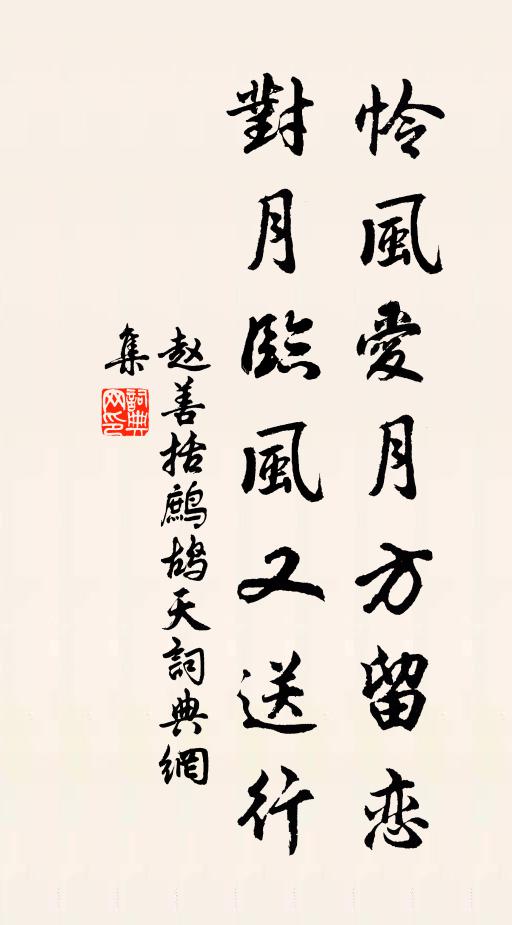 怜風愛月方留恋
對月臨風又送行
赵善括鷓鴣天詞典網
集
詞典
网印